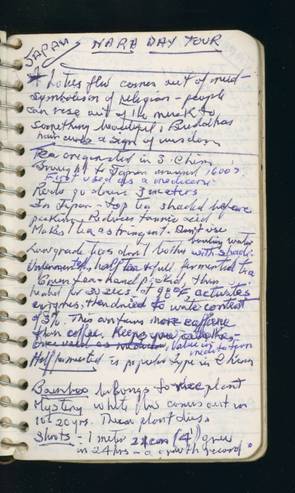 JAPAN NARA DAY TOUR
* Lotus flw comes out of mud -
symbolism of religion - people
can rise out of the muck to
something beautiful. Buddhas
hair curls a sign of wisdom
Tea originated in S. China
Brought to Japan around 1600s
First used as a medicine.
Roots go down 3 meters
In Japan - top tea shaded before
picking. Reduces tannic acid
Makes tea astringent. Don't use
boiling water
Low grade teas don't bother with shade.
half tea full fermented tea
Green tea - hand picked then
water for 30 sec activates
enzymes, then dried to water content
of 3%. This contains more caffeine
than coffee. Keeps you
once used as
medicine
Half fermented is popular type in China
Bamboo belongs to rice plant
Mystery white flw comes out in
10-20 yrs. Then plant dies.
Shoots - 1 meter (4') grew
in 24 hrs - a growth record.